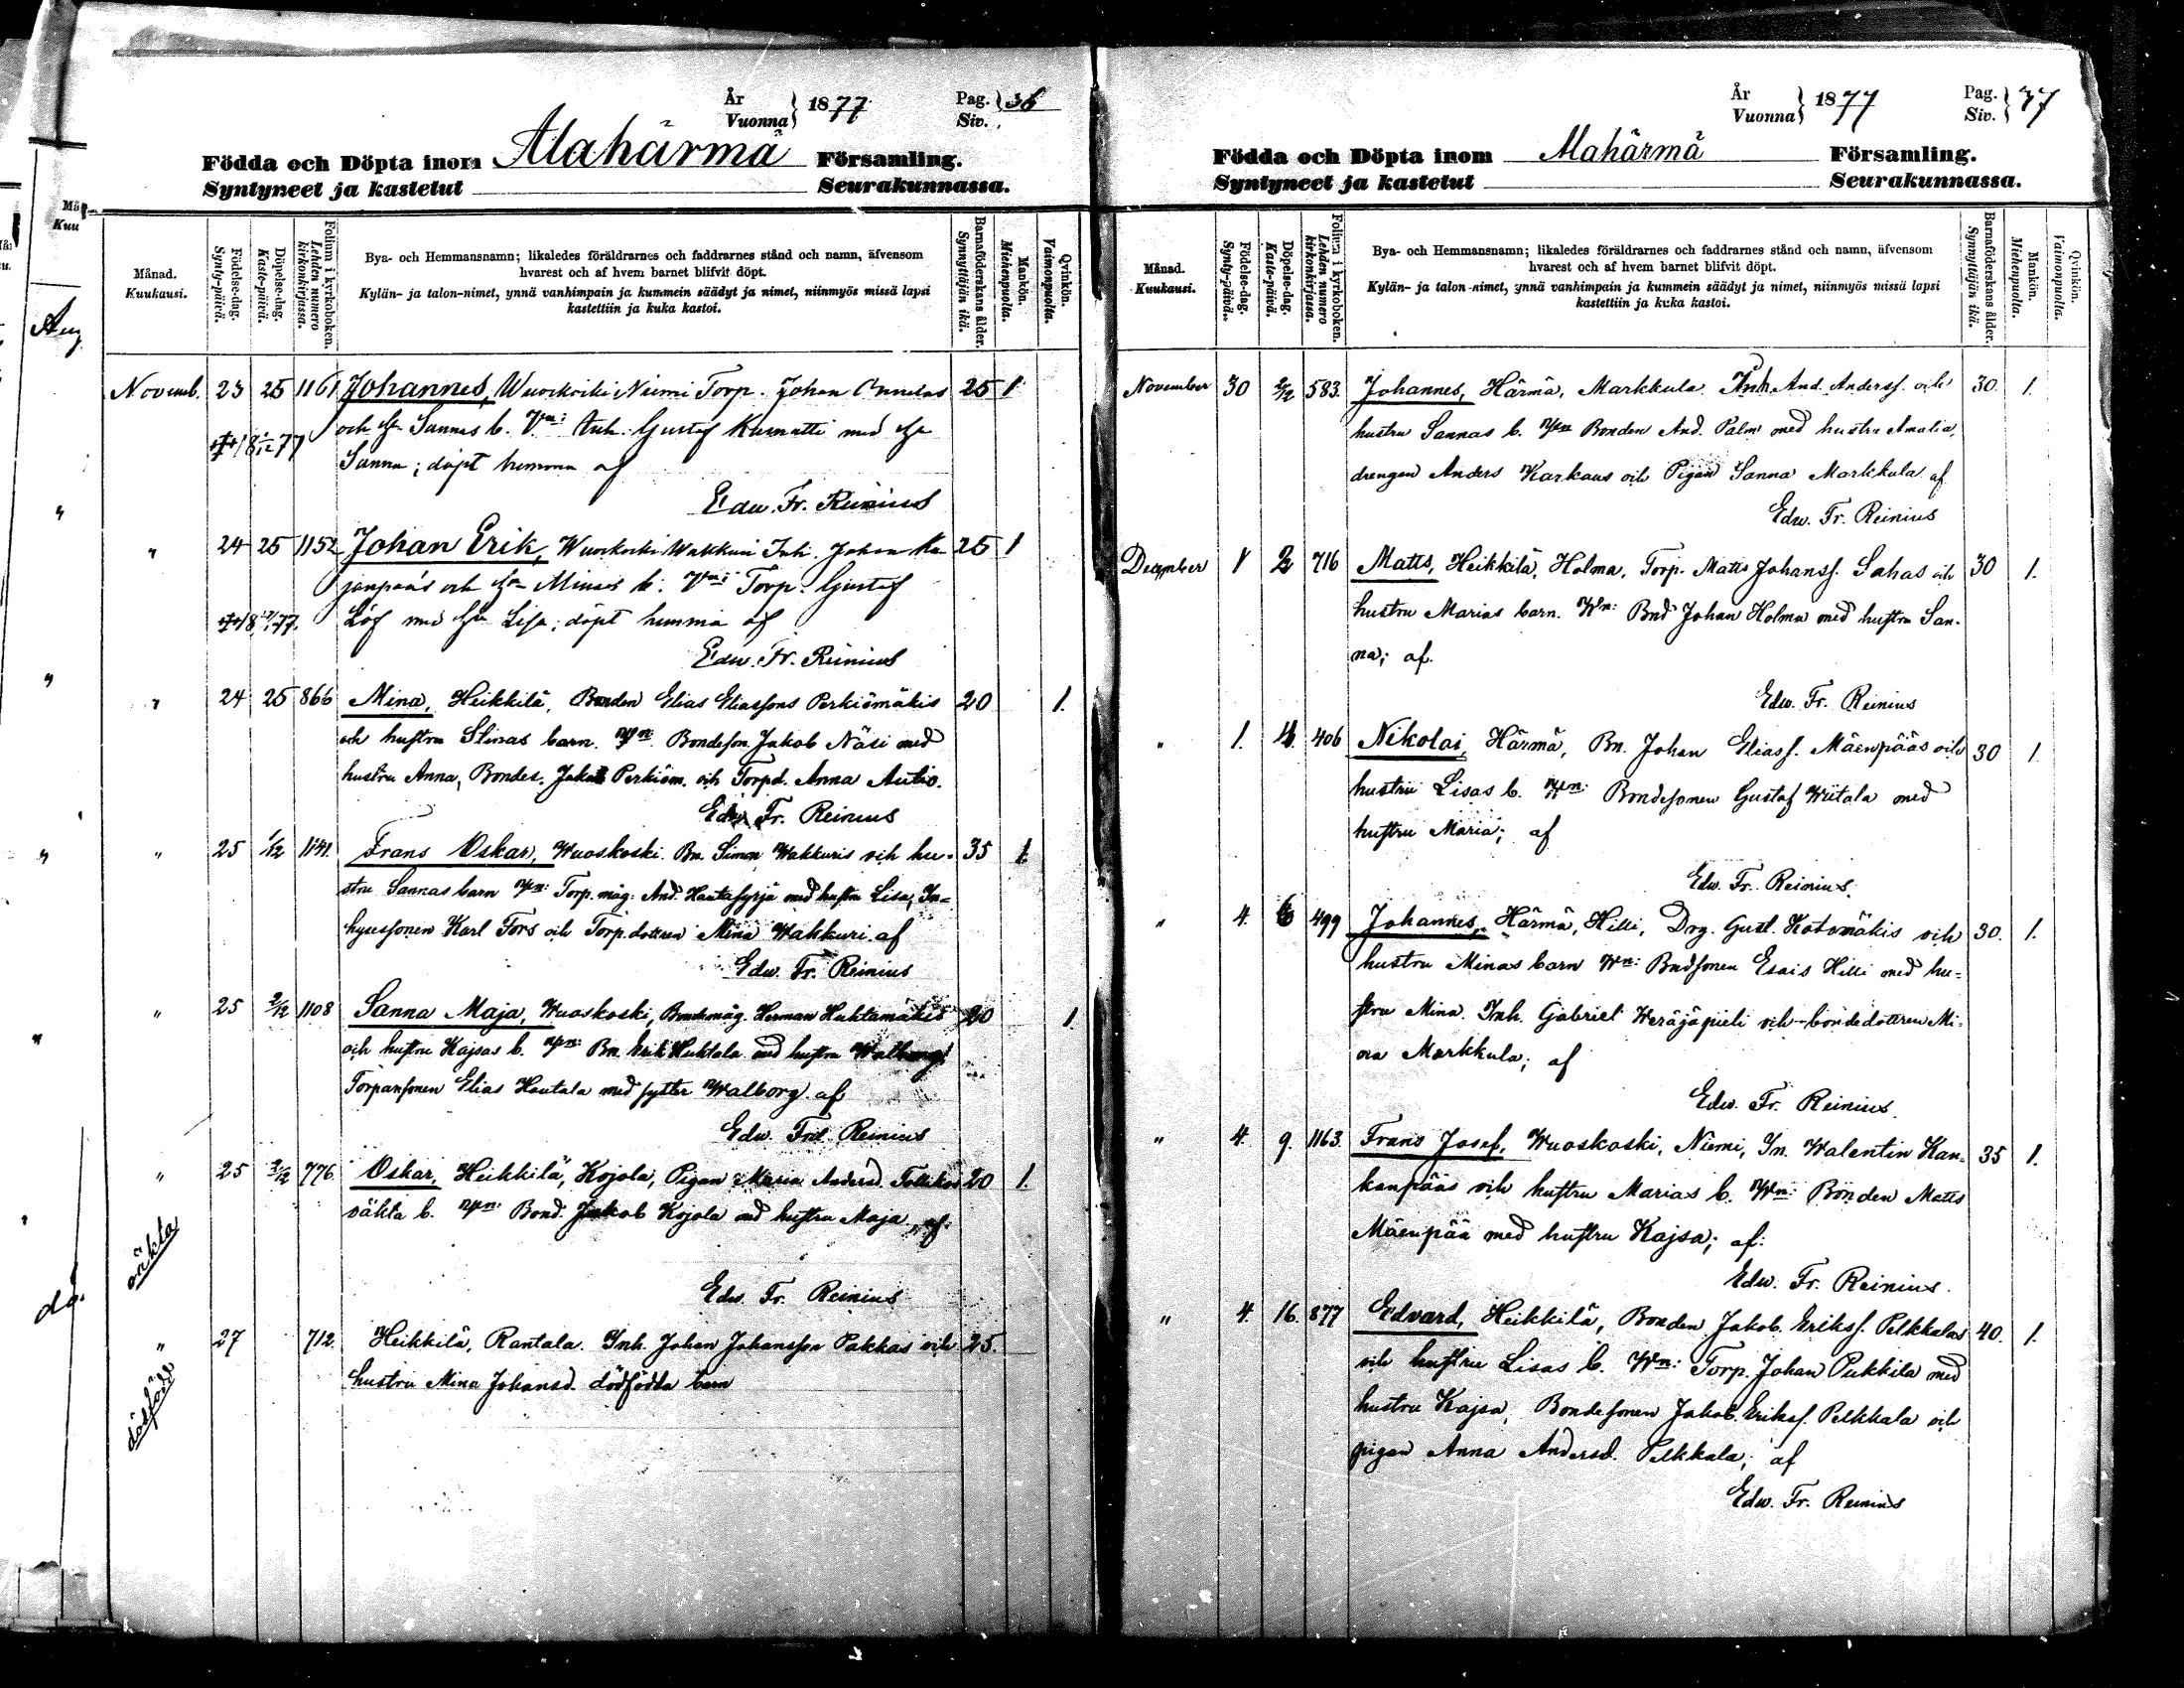 År
Vuonna } 1877. Pag.
Siv. } 36
Födda och Döpta inom Alahärmä Församling.
Syntyneet ja kastetut Seurakunnassa.
Månad.
Kuukausi.
Födelse-dag.
Synty-päivä.
Döpelse-dag.
Kaste-päivä.
Folium i kyrkoboken.
Lehden numero
kirkonkirjassa.
Bya- och Hemmansnamn; likaledes föräldrarnes och faddrarnes stånd och namn, äfvensom
hvarest och af hvem barnet blifvit döpt.
Kylän- ja talon-nimet, ynnä vanhimpain ja kummein säädyt ja nimet, niinmyös missä lapsi
kastettiin ja kuka kastoi.
Barnaföderskans ålder.
Synnyttäjän ikä.
Mankön.
Miehenpuolta.
Qvinkön.
Vaimonpuolta.
Novemb. 23 25 1161 Johannes, Wuoskoski Niemi Torp. Johan 25 1
och Sannas b. Vn: Inh. Gustaf med
Sanna; döpt hemma af
Edw. Fr. Reinius
" 24 25 1152 Johan Erik, Wuoskoski Wakkuri Inh. Johan Ka- 25 1
janpää's och Minas b: Vn: Torp. Gustaf
Löf med Lisa; döpt hemma af
Edw. Fr. Reinius
" 24 25 866 Mina, Heikkilä, Bonden Elias Eliassons Perkiömäkis 20 1.
och hustru Stinas barn. Wn: Bondeson Jakob Näsi med
hustru Anna, Bondes. Jakob Perkiöm. och Torpd. Anna Autio.
Edw. Fr. Reinius
" 25 1/12 1141. Frans Oskar, Wuoskoski. Bn. Simon Wakkuris och hu- 35 1.
stru Sannas barn Wn: Torp. måg. And. Hautasyrjä med hustru Lisa, In-
hysessonen Karl Fors och Torp.dottren Mina Wakkuri. af
Edw. Fr. Reinius
" 25 2/12 1108 Sanna Maja, Wuoskoski, Bondemåg. Herman Huhtamäkis 20 1
och hustru Kajsas b. Wn: Bn. Erik Huhtala med hustru Walborg
Torparsonen Elias Hautala med syster Walborg. af
Edw. Frd. Reinius
" 25 2/12 776. Oskar, Heikkilä, Kojola, Pigan Maria Andersd. 20 1.
oäkta b. Wn: Bond. Jakob Kojola med hustru Maja, af:
oäkta
Edw. Fr. Reinius
" 27 712. Heikkilä, Rantala. Inh. Johan Johansson Pakkas och 25.
hustru Mina Johansd. dödfödda barn
dödfödd
År
Vuonna } 1877 Pag.
Siv. } 37
Födda och Döpta inom Alahärmä Församling.
Syntyneet ja kastetut Seurakunnassa.
Månad.
Kuukausi.
Födelse-dag.
Synty-päivä.
Döpelse-dag.
Kaste-päivä.
Folium i kyrkoboken.
Lehden numero
kirkonkirjassa.
Bya- och Hemmansnamn; likaledes föräldrarnes och faddrarnes stånd och namn, äfvensom
hvarest och af hvem barnet blifvit döpt.
Kylän- ja talon-nimet, ynnä vanhimpain ja kummein säädyt ja nimet, niinmyös missä lapsi
kastettiin ja kuka kastoi.
Barnaföderskans ålder.
Synnyttäjän ikä.
Mankön.
Miehenpuolta.
Qvinkön.
Vaimonpuolta.
November 30 2/12 583. Johannes, Härmä, Markkula. Inh. And. Anderss. och 30. 1.
hustru Sannas b. Wn Bonden And. Palm med hustru Amalia,
drengen Anders Karkaus och Pigan Sanna Markkula af
Edw. Fr. Reinius
December 1 2 716 Matts, Heikkilä, Holma, Torp. Matts Johanss. Sahas och 30 1.
hustru Marias barn. Wn: Bnd Johan Holma med hustru San-
na; af.
Edw. Fr. Reinius
" 1. 4. 406 Nikolai, Härmä, Bn. Johan Eliass. Mäenpääs och 30 1.
hustru Lisas b. Wn: Bondesonen Gustaf Wiitala med
hustru Maria; af
Edw. Fr. Reinius.
" 4. 6 499 Johannes, Härmä, Hilli, Drg. Gust. Katomäkis och 30. 1.
hustru Minas barn Wn: Bndsonen Esais Hilli med hu-
stru Mina. Inh. Gabriel Weräjäpieli och bondedottren Mi-
na Markkula; af
Edw. Fr. Reinius.
" 4. 9. 1163. Frans Josef, Wuoskoski, Niemi, In. Walentin Kan- 35 1.
kanpääs och hustru Marias b. Wn: Bonden Matts
Mäenpää med hustru Kajsa; af:
Edw. Fr. Reinius.
" 4. 16. 877 Edvard, Heikkilä, Bonden Jakob Erikss. Pelkkalas 40. 1.
och hustru Lisas b. Wn: Torp. Johan Pukkila med
hustru Kajsa, Bondesonen Jakob Erikss. Pelkkala och
pigan Anna Andersd. Pelkkala; af
Edw. Fr. Reinius